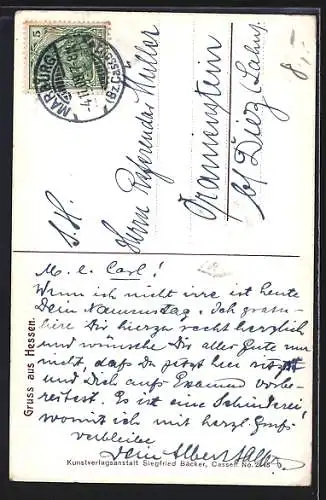 5
MARBURG
(Bz. Cassel)
8,-
S. H.
Herrn Referendar Müller
Oranienstein
b/ Diez (Lahn).
Gruss aus Hessen.
M. l. Carl!
Wenn ich nicht irre ist heute
Dein Namenstag. Ich gratu-
liere Dir hierzu recht herzlich
und wünsche Dir alles Gute nur
nicht, daß du jetzt hier sitzt
und Dich aufs Examen vorbe-
reitest. Es ist eine Schinderei,
womit ich mit herzl. Gruß
verbleibe
Dein Albert
Kunstverlagsanstalt Siegfried Bäcker, Cassel No.